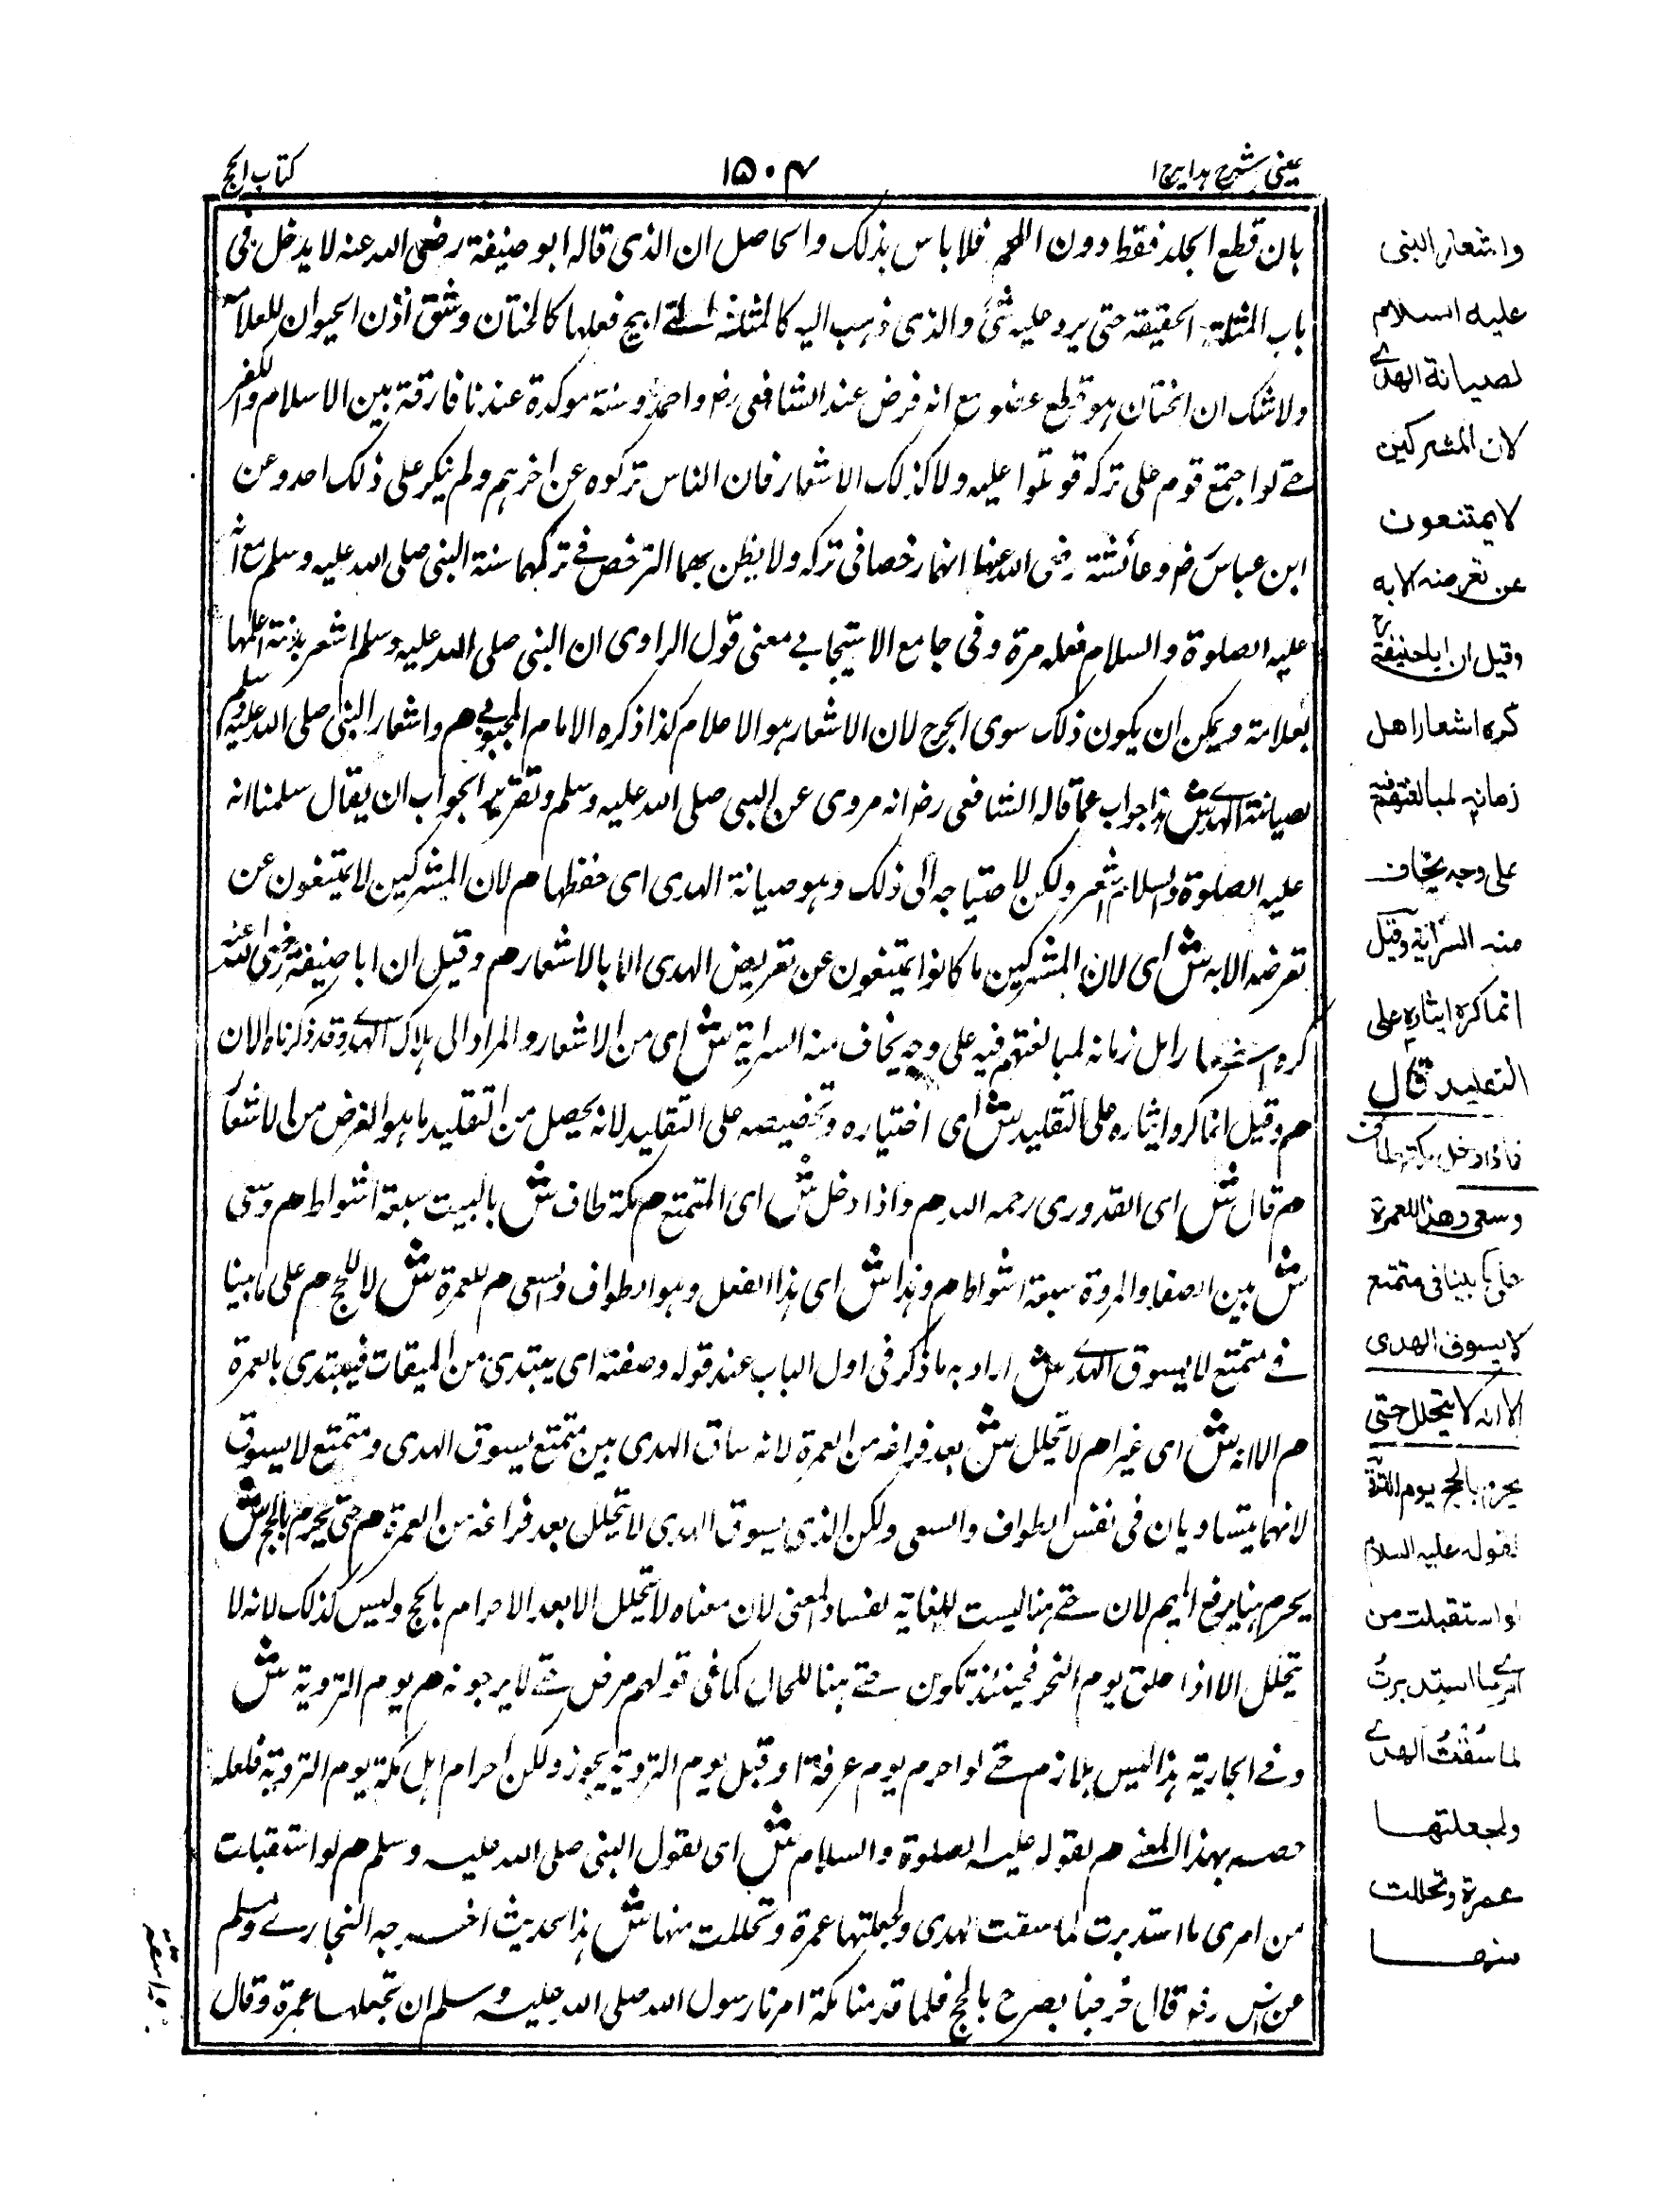 عینی شرح ہدایہ ج ۱
۱۵۰۴
کتاب الحج
بان قطع الجلد فقط دون اللحم فلا باس بذلک والحاصل ان الذی قالہ ابو حنیفة رضی اللہ عنہ لا یدخل فی
باب المثلة الحقیقة حتی یرد علیہ شئ والذی ذہب الیہ کالمثلة التے ابیح فعلہا کالختان وشق اذن الحیوان للعلامة
ولا شک ان الختان ہو قطع عضو مع انہ فرض عند الشافعی رض واحمد وسنة موکدة عندنا فارقة بین الاسلام والکفر
حتے لو اجتمع قوم علی ترکہ قوتلوا علیہ ولا کذلک الاشعار فان الناس ترکوہ عن اخرہم ولم ینکر علی ذلک احد وعن
ابن عباس رض وعائشة رضی اللہ عنہما انہما رخصا فی ترکہ ولا یظن بہما الترخص فے ترکہما سنة النبی صلی اللہ علیہ وسلم مع انہ
علیہ الصلوة والسلام فعلہ مرة وفی جامع الاسبیجابے معنی قول الراوی ان النبی صلی اللہ علیہ وسلم اشعر بدنة اعلمہا
بعلامة ویمکن ان یکون ذلک سوی الجرح لان الاشعار ہو الاعلام کذا ذکرہ الامام المحبوبی م واشعار النبی صلی اللہ علیہ وسلم
لصیانة الہدے ش ہذا جواب عما قالہ الشافعی رض انہ مروی عن النبی صلی اللہ علیہ وسلم وتقریر الجواب ان یقال سلمنا انہ
علیہ الصلوة والسلام اشعر ولکن لاحتیاجہ الی ذلک وہو صیانة الہدی ای حفظہا م لان المشرکین لا یمتنعون عن
تعرضہ الا بہ ش ای لان المشرکین ما کانوا یمتنعون عن تعریض الہدی الا بالاشعار م وقیل ان ابا حنیفة رضی اللہ عنہ
کرہ اشعار اہل زمانہ لمبالغتہم فیہ علی وجہ یخاف منہ السرایة ش ای من الاشعار والمراد الی ہلاک الہدے وقد ذکرناہ الان
م وقیل انما کرہ ایثارہ علی التقلید ش ای اختیارہ وتخصیصہ علی التقلید لانہ یحصل من التقلید ما ہو الغرض من الاشعار
م قال ش ای القدوری رحمہ اللہ م واذا دخل ش ای المتمتع م مکة طاف ش بالبیت سبعة اشواط م وسعی
ش بین الصفا والمروة سبعة اشواط م وہذا ش ای ہذا الفعل وہو الطواف والسعی م للعمرة ش لا للحج م علی ما بینا
فے متمتع لا یسوق الہدے ش اراد بہ ما ذکر فی اول الباب عند قولہ وصفتہ ای یبتدئ من المیقات فیبتدی بالعمرة
م الا انہ ش ای غیر انہ م لا یتحلل ش بعد فراغہ من العمرة لانہ ساق الہدی بین متمتع یسوق الہدی ومتمتع لا یسوق
لانہما یتساویان فی نفس الطواف والسعی ولکن الذی یسوق الہدی لا یتحلل بعد فراغہ من العمرة م حتی یحرم بالحج ش
یحرم ہنا برفع المیم لان حتے ہنا لیست للغایة لفساد المعنی لان معناہ لا یتحلل الا بعد الاحرام بالحج ولیس کذلک لانہ لا
یتحلل الا اذا حلق یوم النحر فحینئذ تکون حتے ہنا للحال کما فی قولہم مرض حتے لا یرجونہ م یوم الترویة ش
وفے الجاریة ہذا لیس بلازم حتے لو احرم یوم عرفة او قبل یوم الترویة یجوز ولکن احرام اہل مکة یوم الترویة فلعلہ
خصہ بہذا المعنے م لقولہ علیہ الصلوة والسلام ش ای لقول النبی صلی اللہ علیہ وسلم م لو استقبلت
من امری ما استدبرت لما سقت الہدی ولجعلتہا عمرة وتحللت منہا ش ہذا الحدیث اخرجہ البخارے ومسلم
عن انس رض قال خرجنا یصرح بالحج فلما قدمنا مکة امرنا رسول اللہ صلی اللہ علیہ وسلم ان نجعلہا عمرة وقال
واشعار النبی
علیہ السلام
لصیانة الهدے
لان المشرکین
لا یمتنعون
عن تعرضہ الا بہ
وقیل ان اباحنیفة
کرہ اشعار اهل
زمانہ لمبالغتهم فیہ
علی وجہ یخاف
منہ السرایة وقیل
انما کرہ ایثارہ علی
التقلید قال
فاذا دخل مکة طاف
وسعی وهذا للعمرة
علی ما بینا فی متمتع
لا یسوق الهدی
الا انہ لا یتحلل حتی
یحرم بالحج یوم الترویة
لقولہ علیہ السلام
لو استقبلت من
امری ما استدبرت
لما سقت الهدے
ولجعلتها
عمرة وتحللت
منها